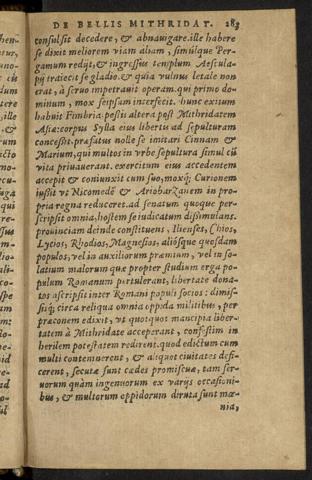 DE BELLIS MITHRIDAT. 283
consulsit decedere, & abnauigare. ille habere
se dixit meliorem viam aliam, simúlque Per-
gamum redijt, & ingressus templum Æsculа-
pij traiecit se gladio. & quia vulnus letale non
erat, à seruo impetrauit operam. qui primo do-
minum, mox seipsam interfecit. hunc exitum
habuit Fimbria pessis altera post Mithridatem
Asiæ: corpus Sylla eius libertis ad sepulturam
concessit. præfatus nolle se imitari Cinnam &
Marium, qui multos in vrbe sepultura simul cũ
vita priuauerant. exercitum eius accedentem
accepit & coniunxit cum suo, moxq; Curionem
iussit vt Nicomedē & Ariobarzanem in pro-
pria regna reduceret. ad senatum quoque per-
scripsit omnia, hostem se iudicatum dissimulans.
prouinciam deinde constituens, Ilienses, Chios,
Lycios, Rhodios, Magnesios, aliósque quosdam
populos, vel in auxiliorum præmium, vel in so-
latium malorum quæ propter studium erga po-
pulum Romanum pertulerant, libertate dona-
tos ascripsit inter Romani populi socios: dimis-
sisq; circa reliqua omnia oppida militibus, per
præconem edixit, vt quotquot mancipia liber-
tatem à Mithridate acceperant, confestim in
herilem potestatem redirent. quod edictum cum
multi contemnerent, & aliquot ciuitates defi-
cerent, secutæ sunt cædes promiscuæ, tam ser-
uorum quàm ingenuorum ex varijs occasioni-
bus, & multorum oppidorum diruta sunt mœ-
nia,